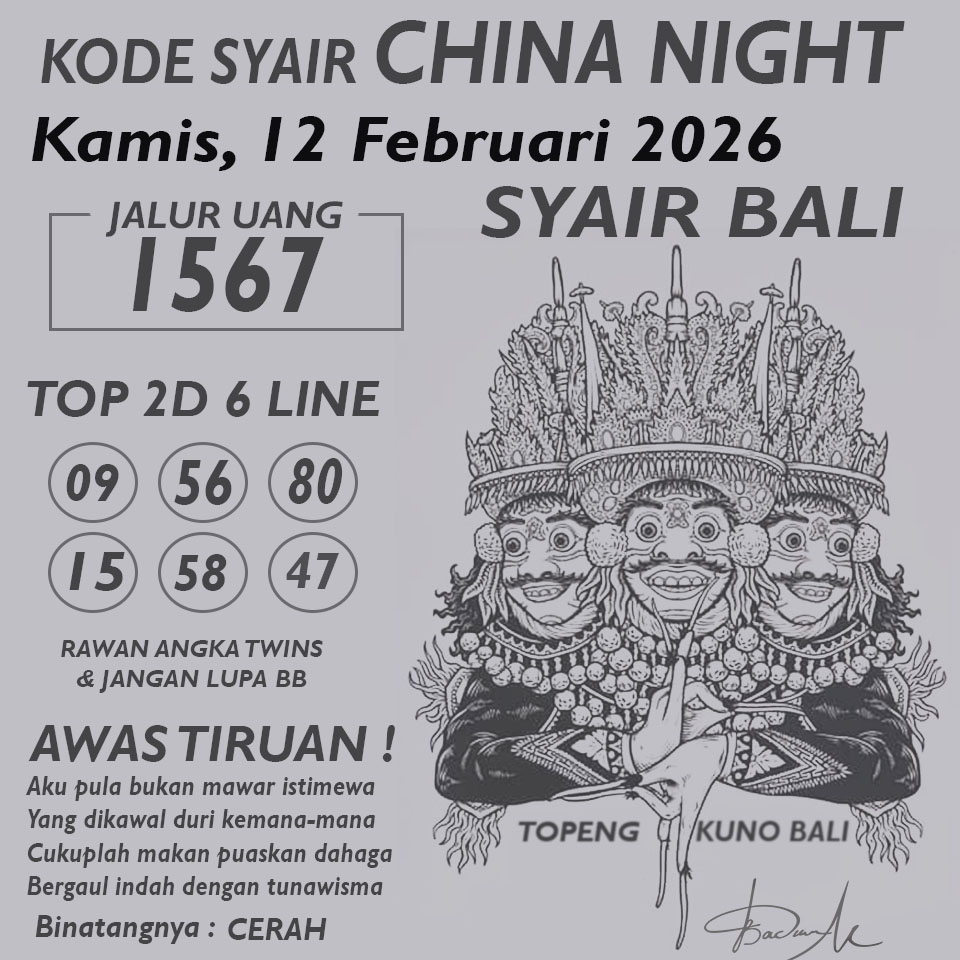 KODE SYAIR CHINA NIGHT
Kamis, 12 Februari 2026
SYAIR BALI
JALUR UANG
1567
TOP 2D 6 LINE
09 56 80
15 58 47
RAWAN ANGKA TWINS
& JANGAN LUPA BB
AWAS TIRUAN !
Aku pula bukan mawar istimewa
Yang dikawal duri kemana-mana
Cukuplah makan puaskan dahaga
Bergaul indah dengan tunawisma
Binatangnya : CERAH
TOPENG KUNO BALI